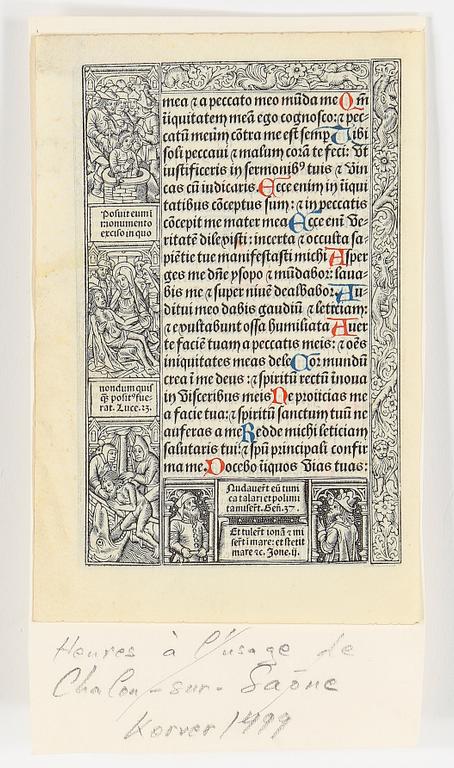 mea ⁊ a peccato meo mũda me Qm̃
iniquitatem meã ego cognosco: ⁊ pec-
catũ meũm cõtra me est semp Tibi
soli peccaui ⁊ malum corã te feci: vt
iustificeris in sermonibꝰ tuis ⁊ vin
cas cũ iudicaris. Ecce enim in iniqui
tatibus cõceptus sum: ⁊ in peccatis
cõcepit me mater mea Ecce eni ve-
ritatẽ dilexisti: incerta ⁊ occulta sa-
piẽtie tue manifestasti michi Asper
ges me dñe ysopo ⁊ mũdabor: laua-
bis me ⁊ super niuẽ dealbabor. Au-
ditui meo dabis gaudiũ ⁊ leticiam:
⁊ exultabunt ossa humiliata Auer
te faciẽ tuam a peccatis meis: ⁊ oẽs
iniquitates meas dele Cor mundũ
crea ĩ me deus: ⁊ spiritũ rectũ inoua
in visceribus meis Ne proiicias me
a facie tua: ⁊ spiritũ sanctum tuũ ne
auferas a me Redde michi leticiam
salutaris tui: ⁊ spũ principali confir
ma me. Docebo iniquos vias tuas:
Posuit eum ĩ
monumento
exciso in quo
nondum quis
q̃ posit᾿ fue-
rat. Luce. 23.
Nudauert̃ eũ tuni
ca talari et polimi
ta misert̃. Geñ. 37.
Et tulert̃ ionã ⁊ mi
sert̃ ĩ mare: et stetit
mare ⁊c. Jone. ij.
Heures à l'usage de
Chalon-sur-Saône
Kerver 1499